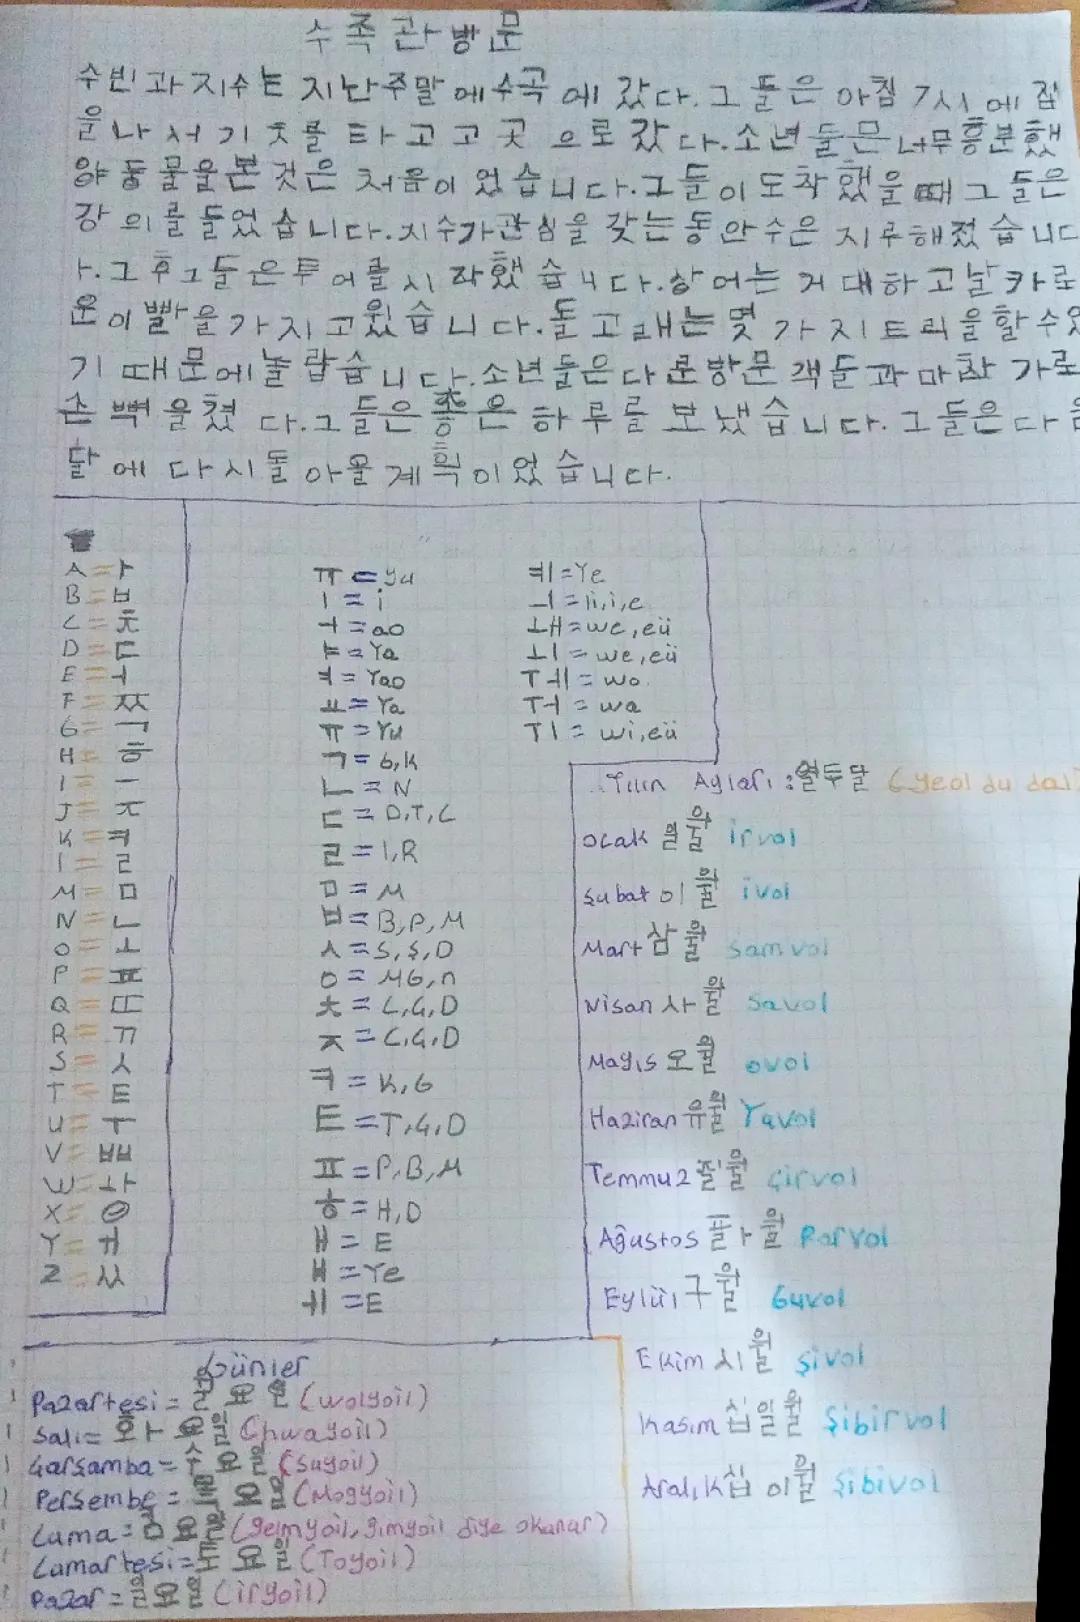 수족관방문
수빈과지수는 지난주말에수곡에 갔다.그들은 아침 7시에집
을나서기차를 타고고곳으로갔다.소년들은너무흥분했
양동물을본것은처음이었습니다.그들이도착했을때그들은
강의를들었습니다.지수가관심을갖는동안수은지루해졌습니다
.그후그들은투어를시작했습니다.상어는거대하고날카로
운이빨을가지고있습니다.돌고래는몇가지트릭을할수있
기때문에놀랍습니다.소년들은다른방문객들과마찬가로
손뼉을쳤다.그들은좋은하루를보냈습니다.그들은다음
달에다시돌아올계획이었습니다.
A=ㅏ
B=ㅂ
C=ㅊ
D=ㄷ
E=ㅓ
F=ㅉ
G=ㄱ
H=ㅎ
I=ㅡ
J=ㅈ
K=ㅋ
l=ㄹ
M=ㅁ
N=ㄴ
O=ㅗ
P=ㅍ
Q=ㄸ
R=ㄲ
S=ㅅ
T=ㅌ
U=ㅜ
V=ㅃ
W=ㅘ
X=
Y=ㅟ
Z=ㅆ
ㅠ=yu
ㅣ=i
ㅓ=ao
ㅑ=Ya
ㅕ=Yao
ㅛ=Ya
ㅠ=Yu
ㄱ=G,K
ㄴ=N
ㄷ=D,T,C
ㄹ=l,R
ㅁ=M
ㅂ=B,P,M
ㅅ=S,Ş,D
ㅇ=MG,n
ㅊ=C,G,D
ㅈ=C,G,D
ㅋ=K,G
ㅌ=T,G,D
ㅍ=P,B,M
ㅎ=H,D
ㅐ=E
ㅒ=Ye
ㅔ=E
ㅖ=Ye
ㅢ=Iı,i,e
ㅙ=we,eü
ㅚ=we,eü
ㅞ=wo
ㅝ=wa
ㅟ=wi,eü
Yılın Ayları:열두달 (yeol du dal)
Ocak 일월 irvol
Şubat 이월 ivol
Mart 삼월 Samvol
Nisan 사월 Savol
Mayıs 오월 ovol
Haziran 유월 Yavol
Temmuz 칠월 çirvol
Ağustos 팔월 Parvol
Eylül 구월 Guvol
Ekim 시월 şivol
Kasım 십일월 Şibirvol
Aralık 십이월 Şibivol
Günler
Pazartesi=월요일(wolyoil)
Salı=화요일(hwayoil)
Çarşamba=수요일(Suyoil)
Perşembe=목요일(Mogyoil)
Cuma=금요일(geimyoil,gimyoil diye okunur)
Cumartesi=토요일(Toyoil)
Pazar=일요일(iryoil)